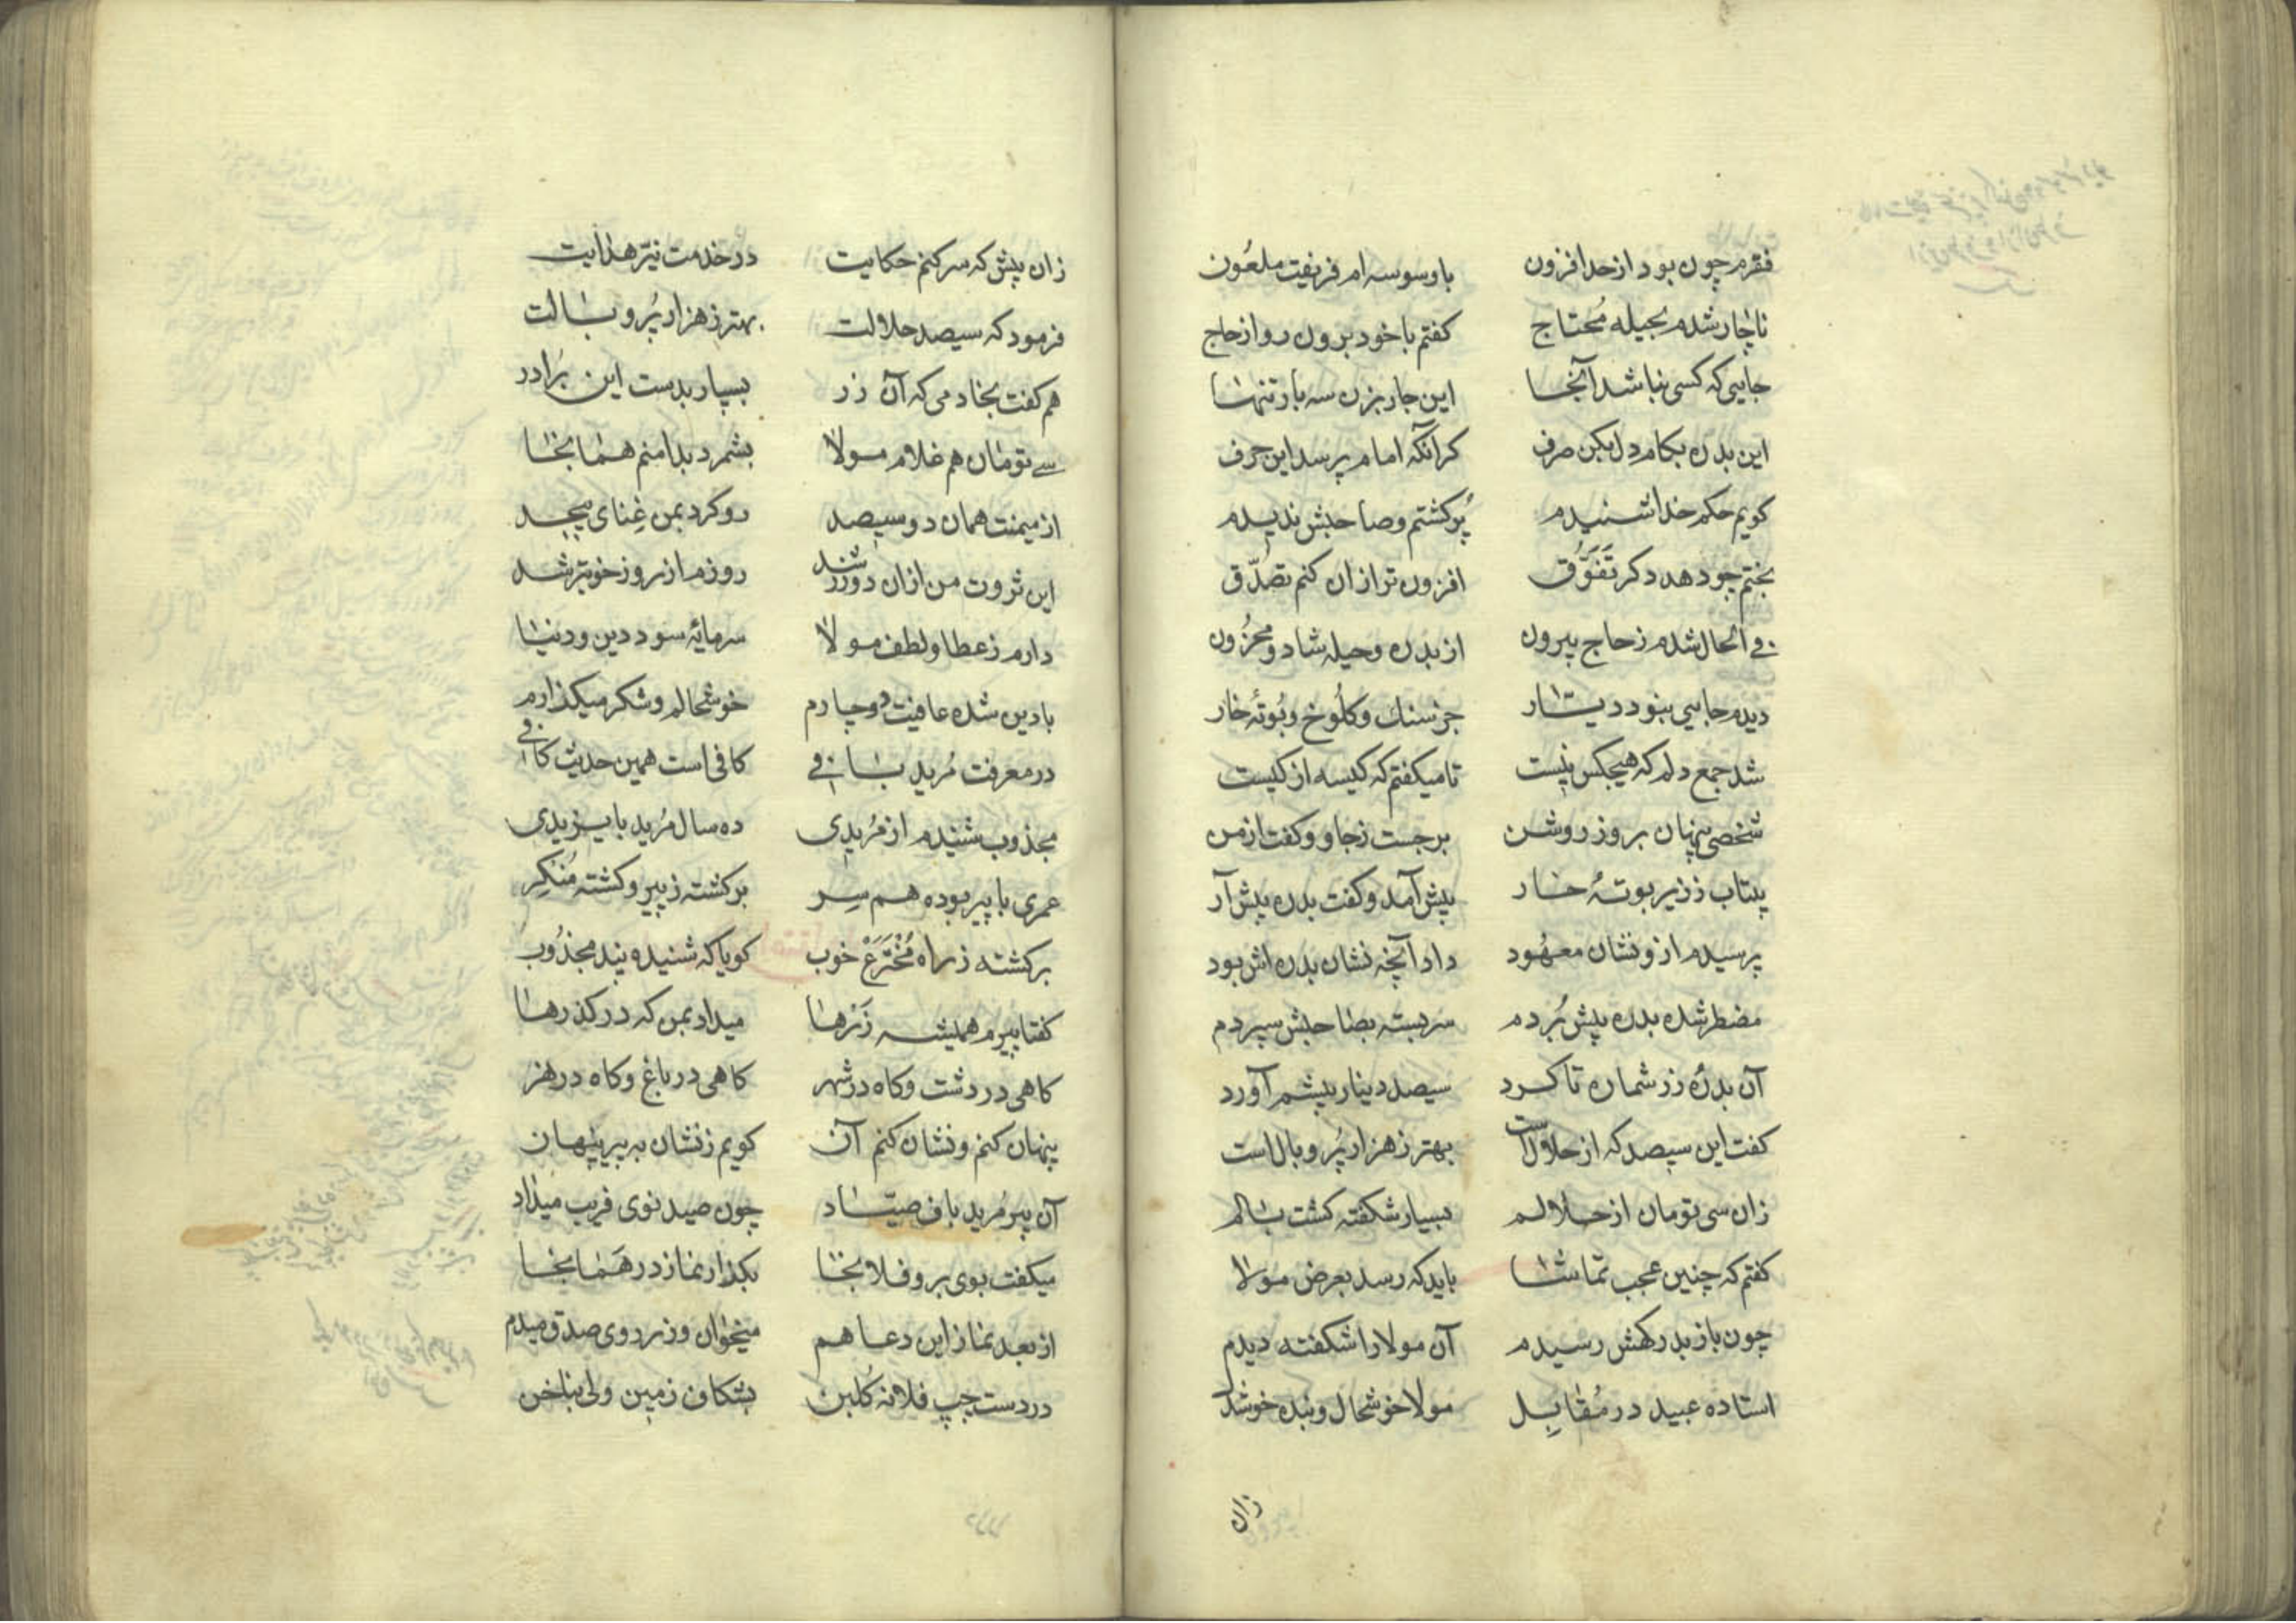 فقرم چون بود از حد افزون با وسوسه ام فریفت ملعُون
ناچار شدم بحیله مُحتاج کفتم با خود برون رو از حاج
جایی که کسی نباشد آنجا این جار بزن سه بار تنها
این بدره بکام دل بکن صرف کر آنکه امام پرسد این حرف
کویم حکم خدا شنیدم پُر کشتم و صاحبش ندیدم
بختم چو دهد دکر تَفَوُّق افزون تر ازان کنم تصدّق
فی الحال شدم ز حاج بیرون از بدره و حیله شاد و محزُون
دیدم جایی نبود دیّار جز سنك و کلُوخ و بُوتهٔ خار
شد جمع دلم که هیچکس نیست تا میکفتم که کیسه از کیست
شخصی پنهان بروز روشن برجست ز جا و و کفت از من
بیتاب ز زیر بوتهٔ خار پیش آمد و کفت بدره پیش آر
پرسیدم ازو نشان معهُود داد آنچه نشان بدره اش بود
مضطر شده بدره پیش بُردم سربسته بصاحبش سپردم
آن بدرهٔ زر شماره تا کرد سیصد دینار پیشم آورد
کفت این سیصد که از حلال است بهتر ز هزار پُر وبال است
زان سی تومان از حلالم بسیار شکفته کشت بالم
کفتم که چنین عجب تماشا باید که رسد بعرض مولا
چون باز بدرکهش رسیدم آن مولا را شکفته دیدم
استاده عبید در مُقابِل مولا خوشحال و بنده خوشدل
زان
زان پیش که سر کنم حکایت در خدمت نیّر هدایت
فرمود که سیصد حلالت بهتر ز هزار پُر و بالت
هم کفت بخادمی که آن زر بسپار بدست این برادر
سی تومان هم غلام مولا بشمرد بدامنم همانجا
از میمنت همان دو سیصد رو کرد بمن غِنای بیحد
این ثروت من ازان دو زر شد روزم از روز خوبتر شد
دارم ز عطا و لطف مولا سرمایهٔ سود دین و دنیا
با دین شده عافیت دوچارم خوشحالم و شکر میکذارم
در معرفت مُرید بافی کافی است همین حدیث کافی
مجذوب شنیدم از مُریدی ده سال مُرید بایزیدی
عمری با پیر بوده هم سِر برکشته ز پیر و کشته مُنکِر
برکشته ز راه مُخْتَرَعْ خوب کویا که شنیده پند مجذُوب
کفتا پیرم همیشه زَرها میداد بمن که در کذرها
کاهی در دشت و کاه در شهر کاهی در باغ و کاه در نهر
پنهان کنم و نشان کنم آن کویم ز نشان به پیر پنهان
آن پیر مُرید باف صیّاد چون صید نوی فریب میداد
میکفت بوی برو فلانجا بکذار نماز در هَمانجا
از بعد نماز این دعا هم میخوان و ز روی صدق میدم
در دست چپ فلانه کُلبن بشکاف زمین ولی بناخن